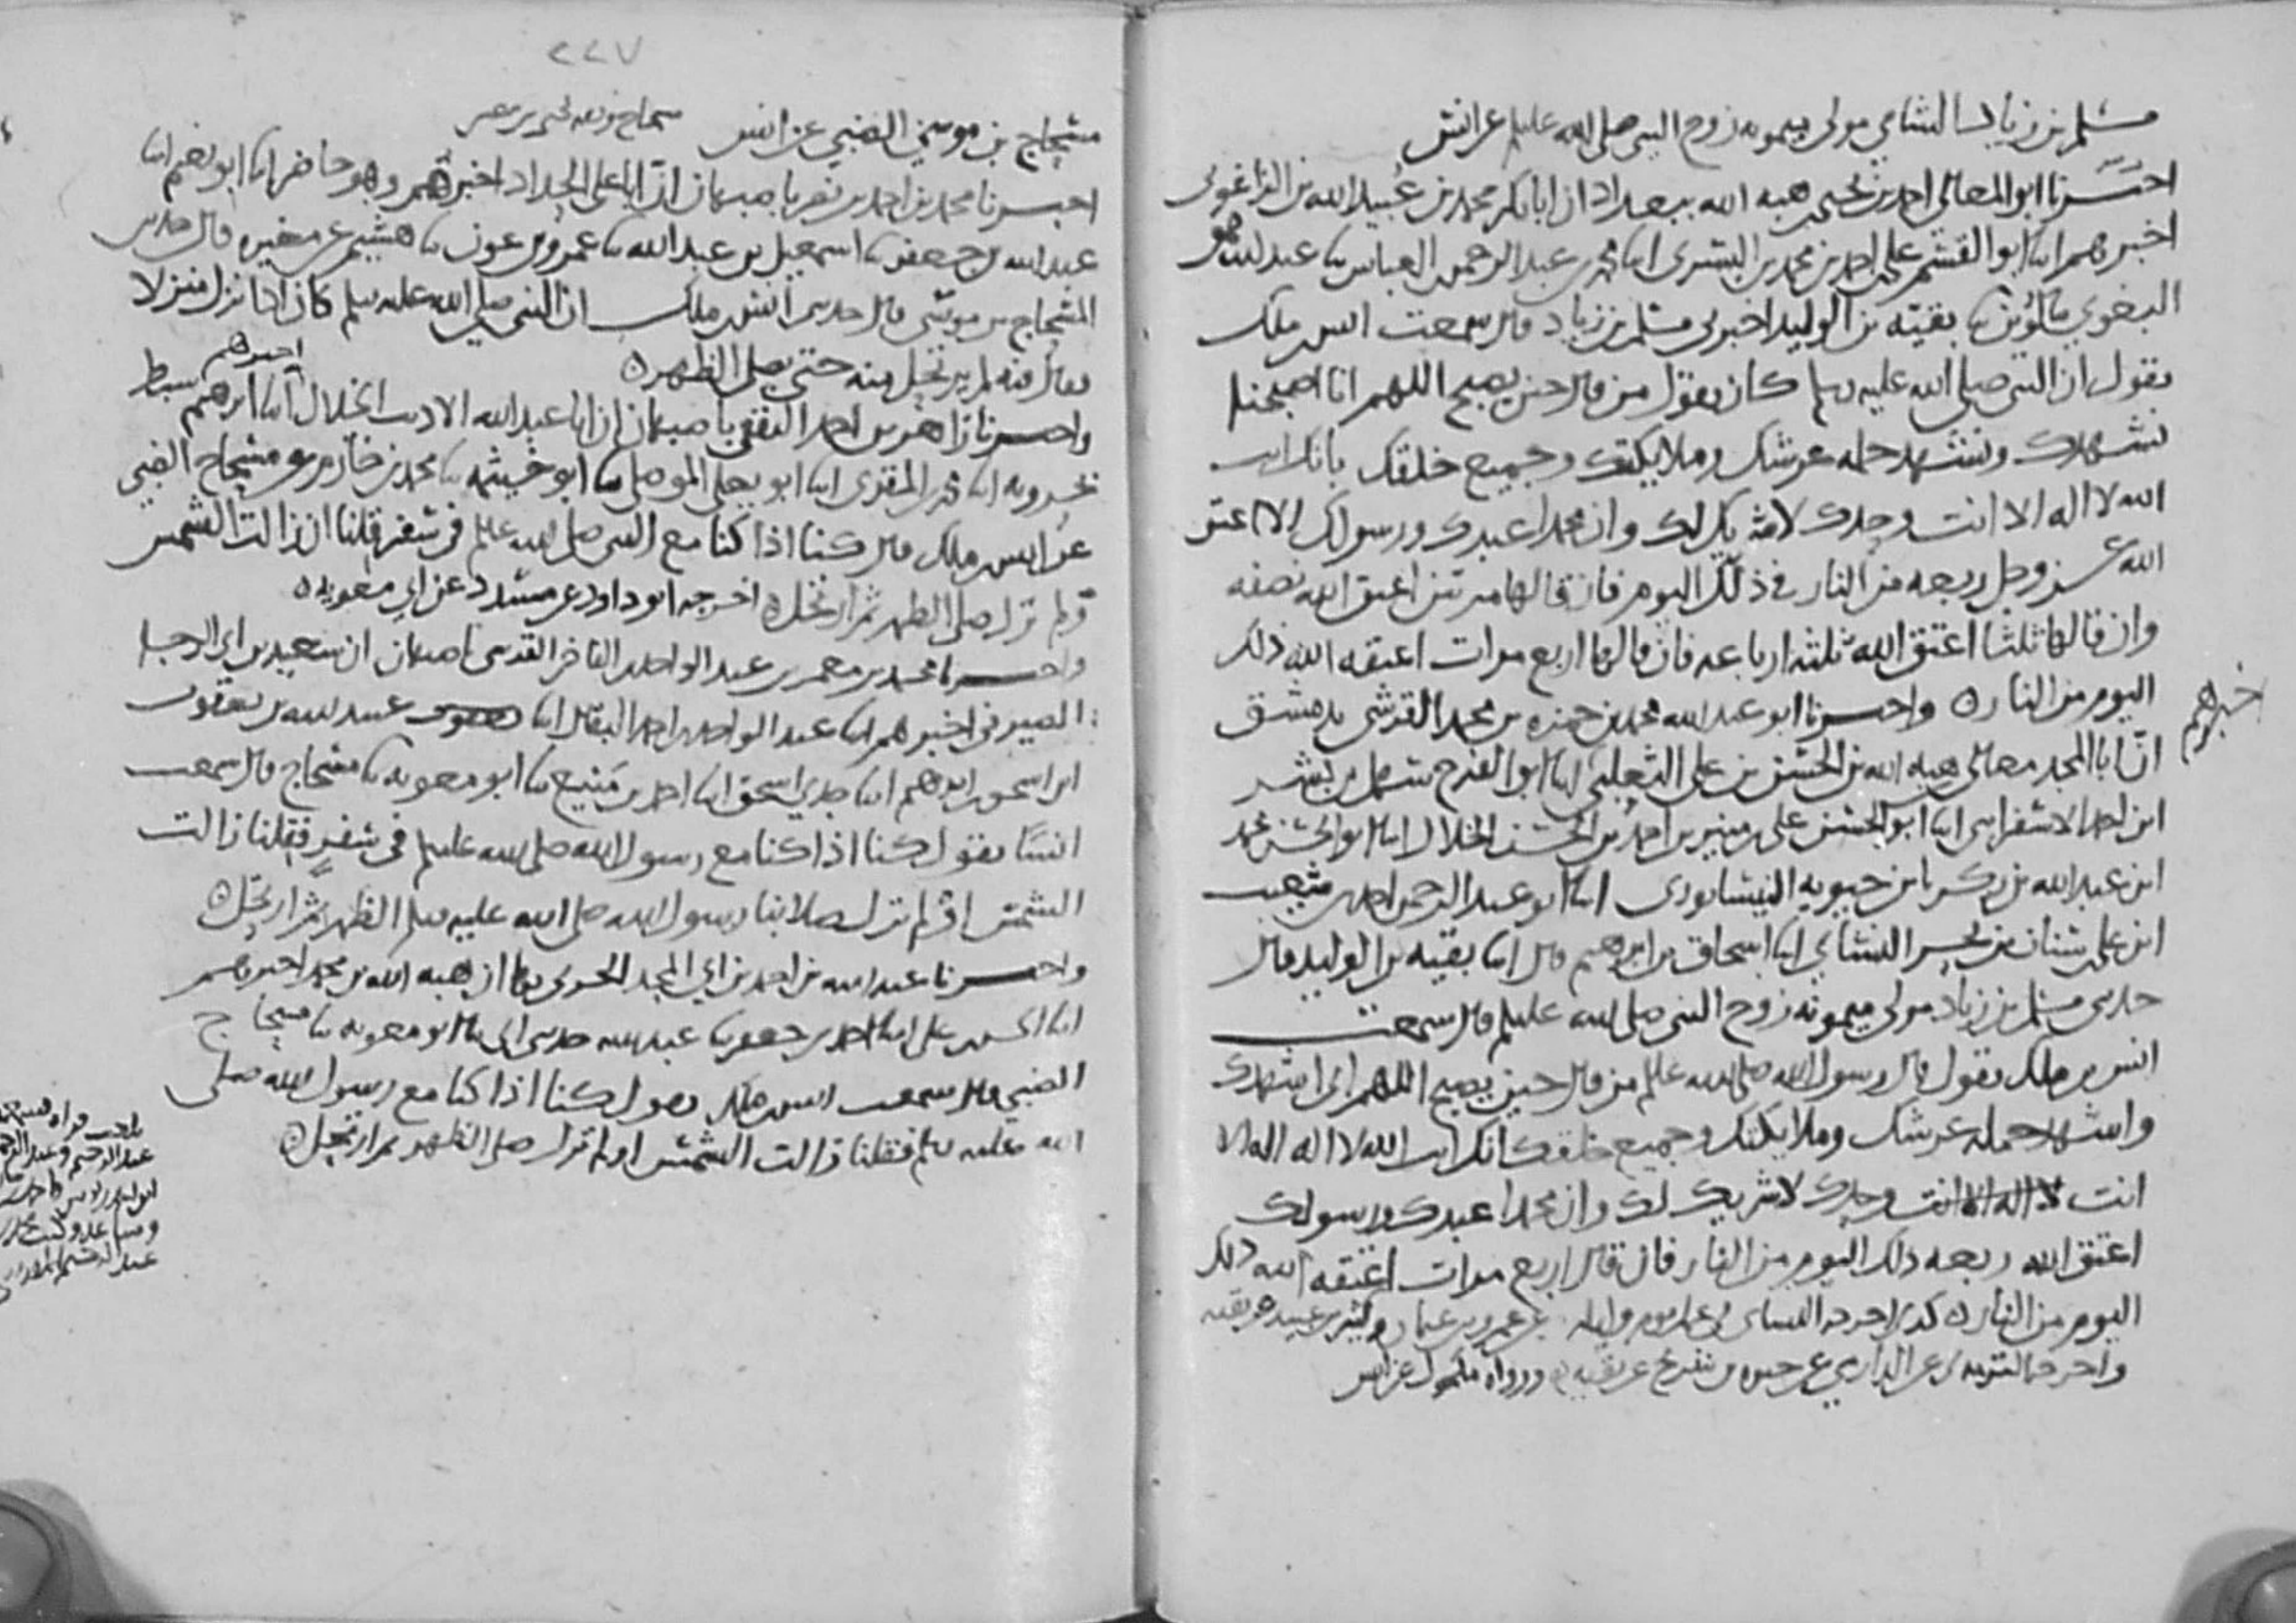 مسلم بن زياد الشامي مولى ميمونه زوج النبي صلى الله عليه وسلم عن انس
اخبرنا ابو المعالي احمد بن يحيى بن هبه الله ببغداد ان ابا بكر محمد بن عبيد الله بن الزاغوني
اخبرهم ابنا ابو القسم علي بن احمد بن محمد بن البسري ابنا محمد بن عبد الرحمن بن العباس ثنا عبد الله هو
البغوي ثنا بقيه بن الوليد اخبرني مسلم بن زياد قال سمعت انس بن ملك
يقول ان النبي صلى الله عليه وسلم كان يقول من قال حين يصبح اللهم انا اصبحنا
نشهدك ونشهد حمله عرشك وملايكتك وجميع خلقك بانك انت
الله لا اله الا انت وحدك لا شريك لك وان محمدا عبدك ورسولك الا اعتق
الله عز وجل ربعه من النار في ذلك اليوم فان قالها مرتين اعتق الله نصفه
وان قالها ثلثا اعتق الله ثلثه ارباعه فان قالها اربع مرات اعتقه الله ذلك
اليوم من النار ه واخبرنا ابو عبد الله محمد بن حمزه بن محمد القرشي بدمشق
اخبرهم
ان ابا المجد معالي بن هبه الله بن الحسن بن علي الثعلبي ابنا ابو الفرج سهل بن بشر
ابن احمد الاسفرايني ابنا ابو الحسن علي بن منير بن احمد بن الحسن الخلال ابنا ابو الحسن محمد
ابن عبد الله بن زكريا بن حيويه النيسابوري ابنا ابو عبد الرحمن احمد بن شعيب
ابن علي بن سنان بن بحر النسائي ابنا اسحاق بن ابرهيم قال ابنا بقيه بن الوليد قال
حدثني مسلم بن زياد مولى ميمونه زوج النبي صلى الله عليه وسلم قال سمعت
انس بن ملك يقول قال رسول الله صلى الله عليه وسلم من قال حين يصبح اللهم اني اشهدك
واشهد حمله عرشك وملايكتك وجميع خلقك انك انت الله لا اله الا
انت لا اله الا انت وحدك لا شريك لك وان محمدا عبدك ورسولك
اعتق الله ربعه ذلك اليوم من النار فان قال اربع مرات اعتقه الله ذلك
اليوم من النار ه كذا اخرجه النسائي في عمل يوم وليله عن عمرو بن عثمان وكثير بن عبيد عن بقيه
واخرجه الترمذي عن الدارمي عن حيوه بن شريح عن بقيه ورواه مكحول عن انس
٢٢٧
مسحاج بن موسى الضبي عن انس
اخبرنا محمد بن احمد بن نصر باصبهان ان ابا علي الحداد اخبرهم وهو حاضر ابنا ابو نعيم ابنا
عبد الله بن جعفر ثنا اسمعيل بن عبد الله ثنا عمرو بن عون ثنا هشيم عن مغيره قال حدثني
المسحاج بن موسى قال حدثني انس بن ملك ان النبي صلى الله عليه وسلم كان اذا نزل منزلا
فقال فيه لم يرتحل منه حتى يصلي الظهر ه
اخبرهم
واخبرنا زاهر بن احمد الثقفي باصبهان ان ابا عبد الله الاديب الخلال ابنا ابرهيم سبط
بحرويه ابنا محمد المقري ابنا ابو يعلى الموصلي ثنا ابو خيثمه ثنا محمد بن خازم عن مسحاج الضبي
عن انس بن ملك قال كنا اذا كنا مع النبي صلى الله عليه وسلم في سفر قلنا ان زالت الشمس
او لم تزل صلى الظهر ثم ارتحل ه اخرجه ابو داود عن مسدد عن ابي معويه ه
واخبرنا محمد بن معمر بن عبد الواحد الفاخر القرشي باصبهان ان سعيد بن ابي الرجا
الصيرفي اخبرهم ابنا عبد الواحد بن احمد البقال ابنا عبيد الله بن يعقوب
ابن اسحق بن ابرهيم ابنا جدي اسحق ابنا احمد بن منيع ثنا ابو معويه ثنا مسحاج قال سمعت
انسا يقول كنا اذا كنا مع رسول الله صلى الله عليه وسلم في سفر فقلنا زالت
الشمس او لم تزل صلا بنا رسول الله صلى الله عليه وسلم الظهر ثم ارتحل ه
واخبرنا عبد الله بن احمد بن ابي المجد الحربي بها ان هبه الله بن محمد اخبرهم
ابنا الحسن بن علي ابنا احمد بن جعفر ثنا عبد الله حدثني ابي ثنا ابو معويه ثنا مسحاج
الضبي قال سمعت انس بن ملك يقول كنا اذا كنا مع رسول الله صلى
الله عليه وسلم فقلنا زالت الشمس او لم تزل صلى الظهر ثم ارتحل ه